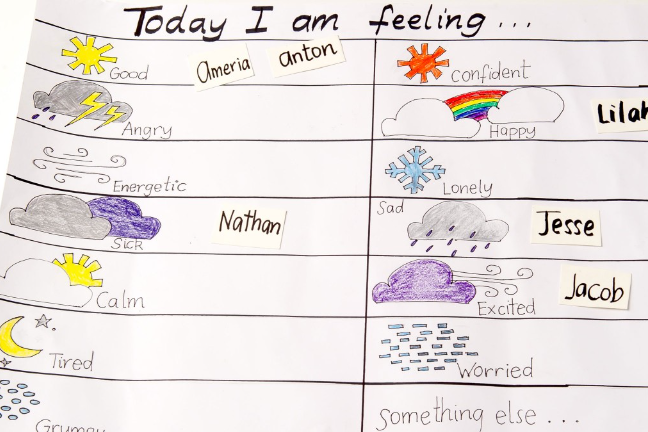 Today I am feeling...
Good
Ameria
anton
Angry
Energetic
Sick
Nathan
Calm
Tired
Grumpy
confident
Happy
Lilah
Lonely
Sad
Jesse
Excited
Jacob
Worried
something else...